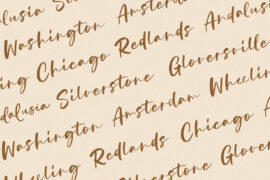 Andalusia Silverstone
Washington Amsterdam
Wheeling Chicago Redlands Andalusia
Andalusia Silverstone Gloversville
Washington Amsterdam Wheeling
Wheeling Redlands Chicago
Silverstone Gloversville